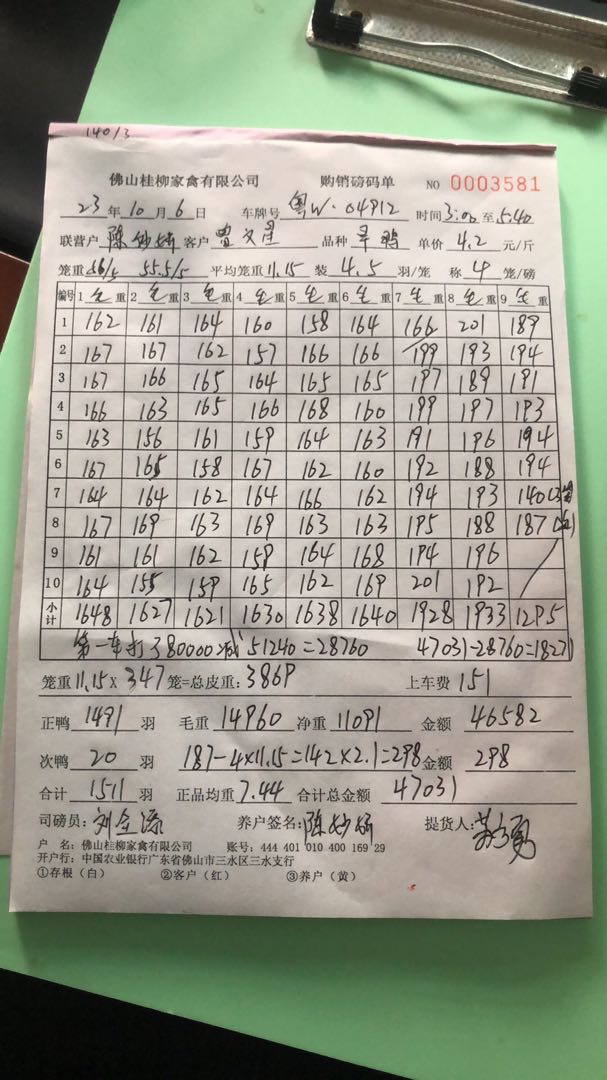 140/3
佛山桂柳家禽有限公司 购销磅码单 NO 0003581
23 年 10 月 6 日 车牌号 粤W·04912 时间 3:00 至 5:40
联营户 陈妙娇 客户 品种 单价 4.2 元/斤
笼重 56/5 55.5/5 平均笼重 11.15 装 4.5 羽/笼 称 4 笼/磅
编号 1 毛 重 2 毛 重 3 毛 重 4 毛 重 5 毛 重 6 毛 重 7 毛 重 8 毛 重 9 毛 重
1 162 161 164 160 158 164 166 201 189
2 167 167 162 157 166 166 199 193 194
3 167 166 165 164 165 165 197 189 191
4 166 163 165 166 168 160 199 197 193
5 163 156 161 159 164 163 191 196 194
6 167 165 158 167 162 160 192 188 194
7 164 164 162 164 166 162 194 193 140(3笼
8 167 169 163 169 163 163 195 188 187
9 161 161 162 159 164 168 194 196
10 164 155 159 165 162 169 201 192
小计 1648 1627 1621 1630 1638 1640 1928 1933 1295
第一车打了80000减51240=28760 47031-28760=18271
笼重 11.15 X 347 笼=总皮重: 3869 上车费 151
正鸭 1491 羽 毛重 14960 净重 11091 金额 46582
次鸭 20 羽 187-4×11.15=142×2.1=298 金额 298
合计 1511 羽 正品均重 7.44 合计总金额 47031
司磅员: 养户签名: 陈妙娇 提货人:
户 名: 佛山桂柳家禽有限公司 账号: 444 401 010 400 169 29
开户行: 中国农业银行广东省佛山市三水区三水支行
①存根（白） ②客户（红） ③养户（黄）